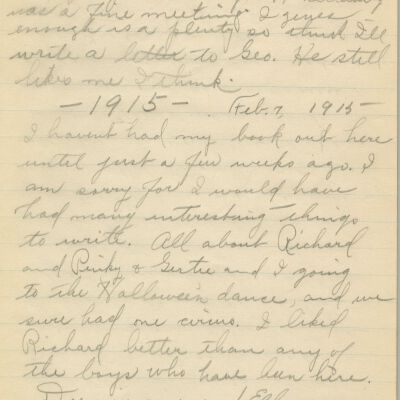 was a fine meeting. I guess
enough is a plenty so think I'll
write a letter to Geo. He still
likes me I think.
-1915- Feb. 7, 1915
I havent had my book out here
until just a few weeks ago. I
am sorry for I would have
had many interesting things
to write. All about Richard
and Pinky & Gertie and I going
to the Halloween dance, and we
sure had one circus. I liked
Richard better than any of
the boys who have been here.